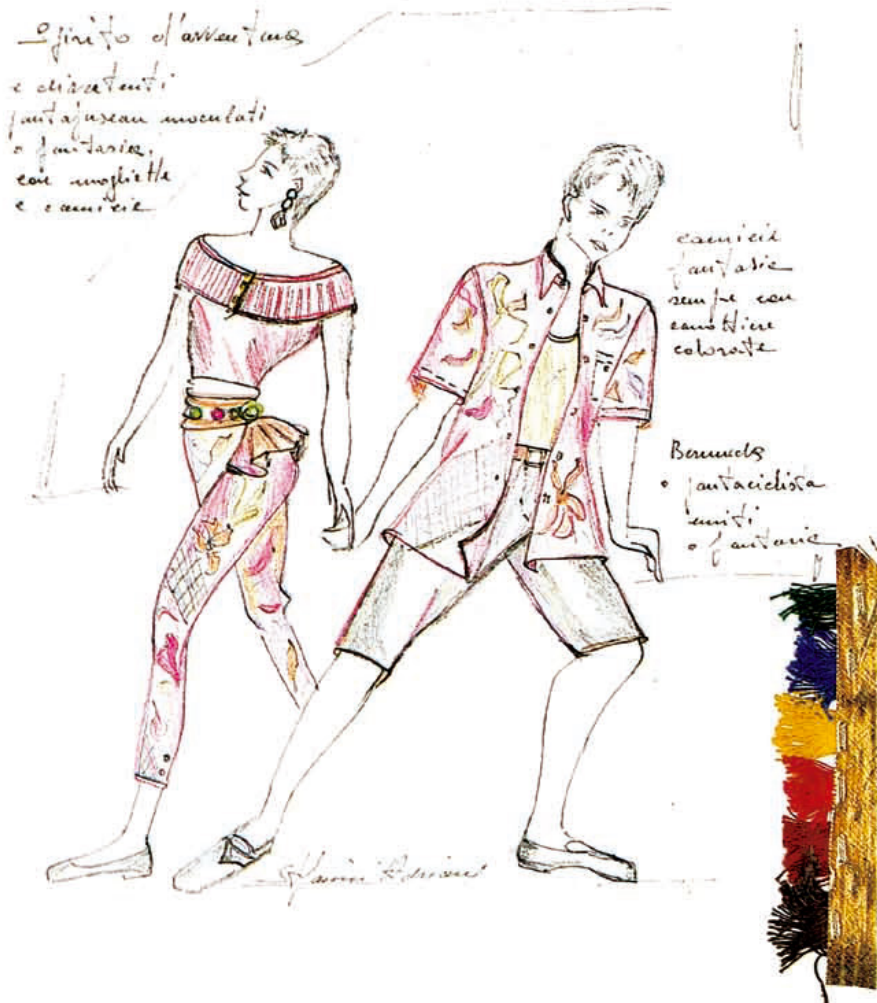 Spirito d'avventura
e divertenti
pantajusean maculati
o fantasia,
con magliette
e camicie
camicie
fantasie
sempre con
canottiere
colorate
Bermuda
o pantaciclista
uniti
o fantasie
Adriani